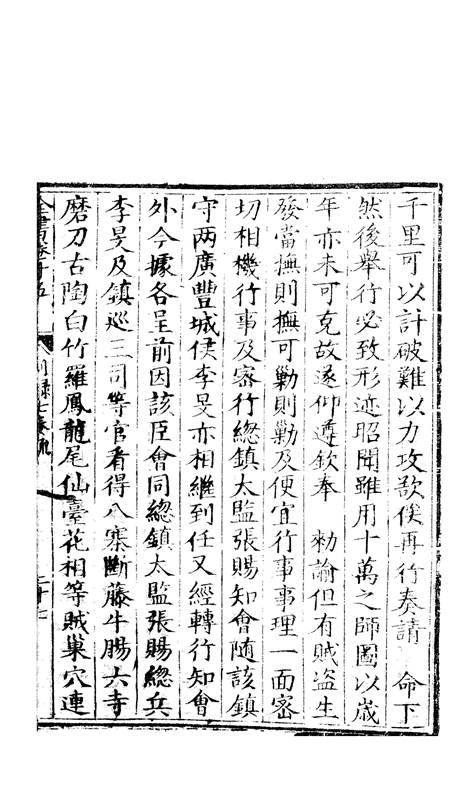 千里可以計破難以力攻欲俟再行奏請　命下
然後舉行必致形迹昭聞雖用十萬之師圖以歲
年亦未可克故遂仰遵欽奉　勑諭但有賊盗生
發當撫則撫可勦則勦及便宜行事事理一面密
切相機行事及密行總鎮太監張賜知會隨該鎮
守两廣豐城侯李旻亦相繼到任又經轉行知會
外今據各呈前因該臣會同總鎮太監張賜總兵
李旻及鎮巡三司等官看得八寨斷藤牛腸六寺
磨刀古陶白竹羅鳳龍尾仙臺花相等賊巢穴連
全書卷十五　别録七奏疏　二十七